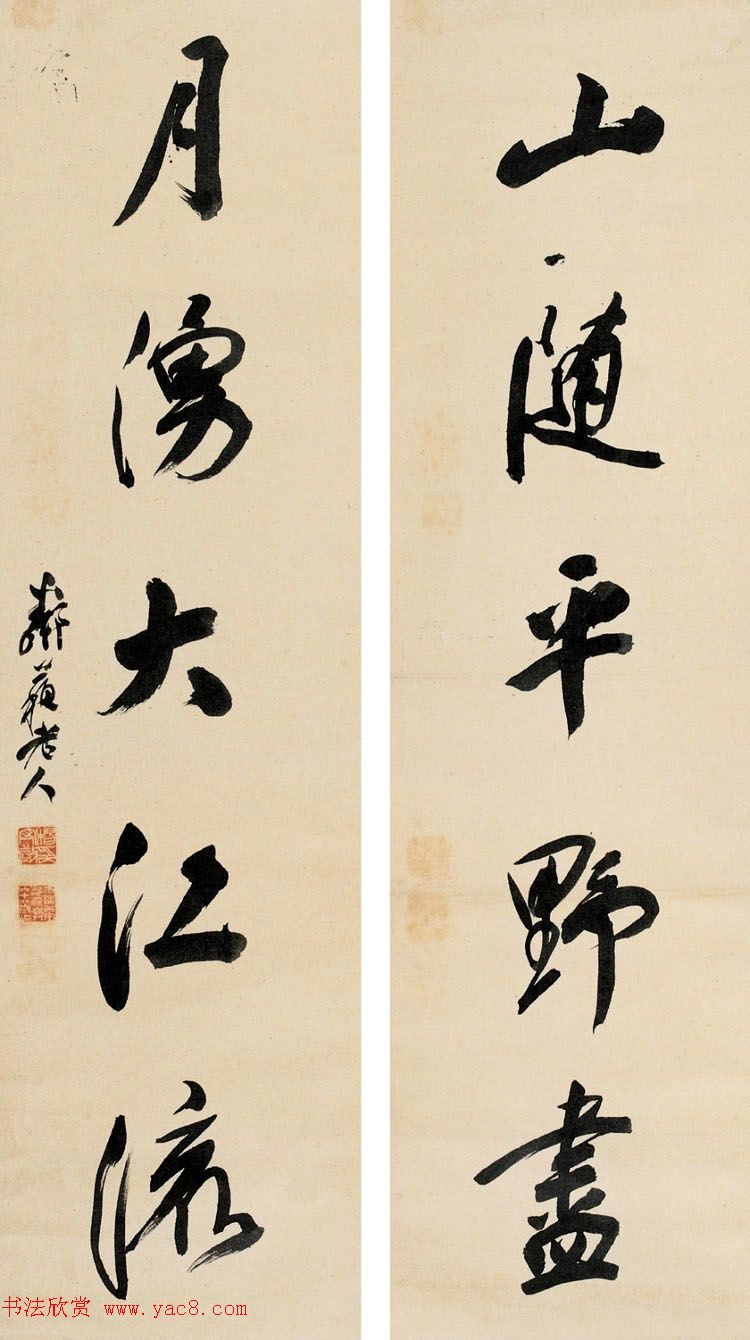 山随平野盡
月湧大江流
鄰蘇老人
书法欣赏 www.yac8.com